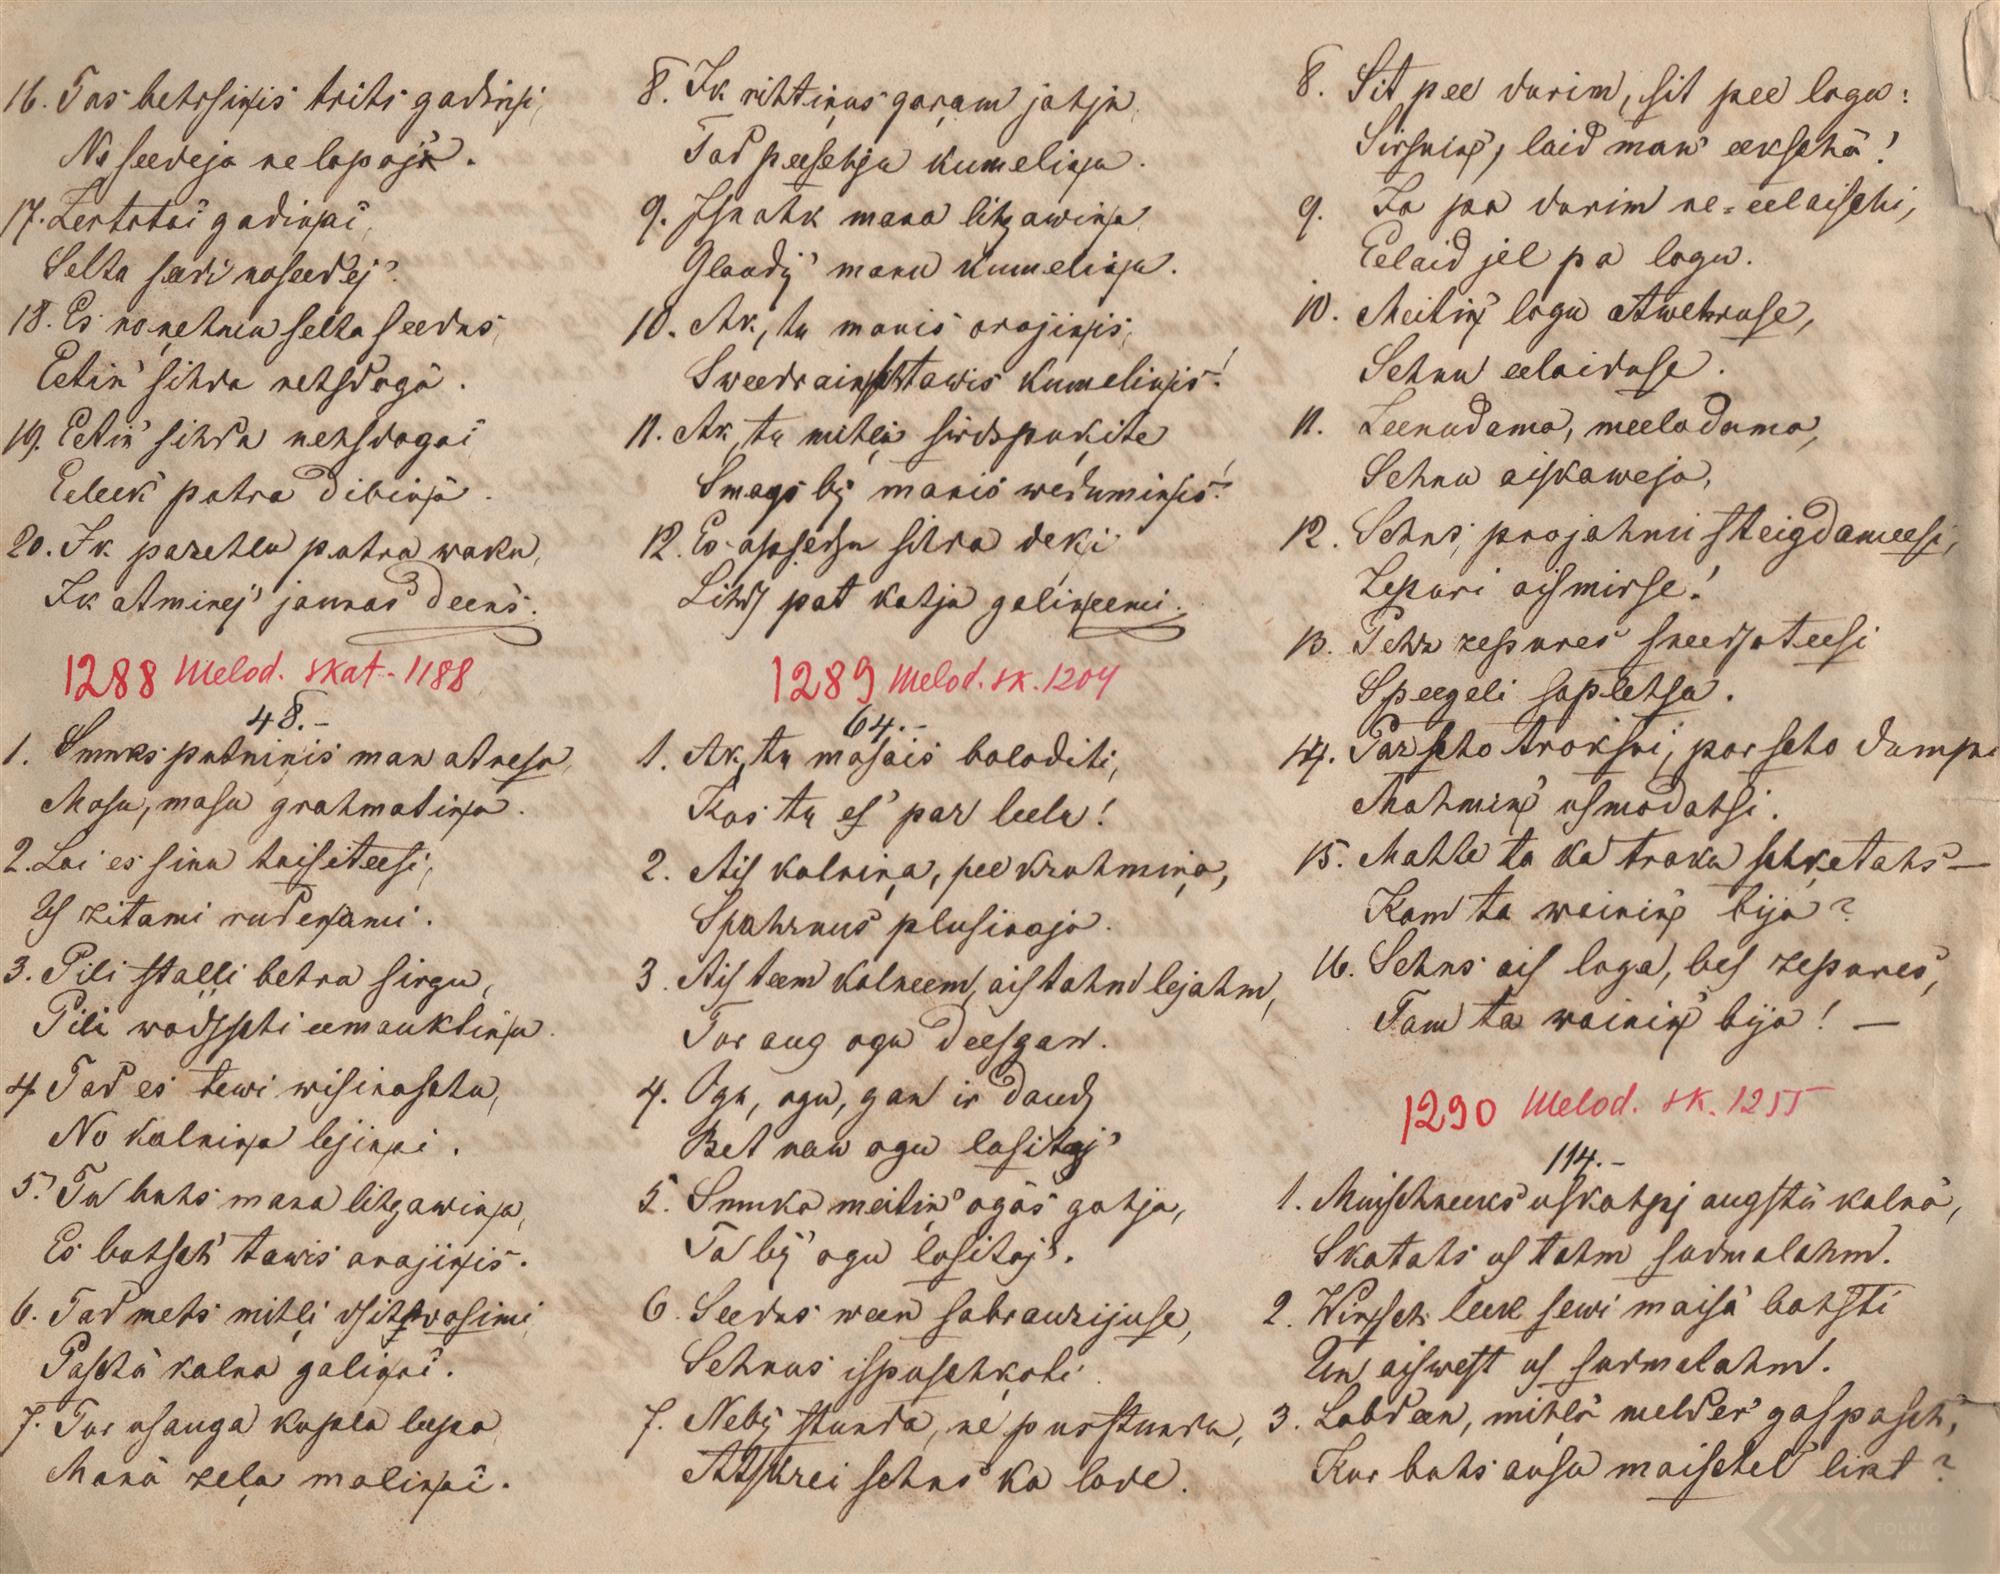 16. Tas behrsiņis trits gadiņņi,
Ne seedeja ne lapoja.
17. Zertotai gadiņņai,
Selta seedi noseedej'.
18. Es noņehmu selta seedus,
Eetin' sihda nehsdogā.
19. Eetin' sihda nehsdogai
Eeleek' putra dibiņņā.
20. Ik pazehlu putra waku,
Ik atminej' jaunas deen's.
1288 Melod. skat. 1188
48.–
1. Smuks putniņis man atnesa
Masu, masu grahmatiņņu.
2. Lai es sinu taisiteesi,
Us zitami rudeņņami.
3. Pili stalli behra sirgu,
Pili wadsschi eemauktiņņu.
4. Tad es tewi wisinaschu,
No kalniņņa lejiņņai.
5. Tu buhs mana lihgawiņņa,
Es butsch' tawis arajiņņis.
6. Tad mehs mihļi dsihwosimi
Paschā kalna galiņņai.
7. Tur usauga kupla leepa
Manā zeļa maliņņai.
8. Ik rihtiņus garam jahju
Tad peesehju kumeliņņu.
9. Isnahk mana lihgawiņņa
Glaudij' manu kumeliņņu.
10. Ak, tu manis arajiņņis,
Sweedrains tawis kumeliņņis!
11. Ak, tu mihļa sirdspuķite
Smags bij manis weduminņis!
12. Es apsedsu sihda deķi
Lihds pat kahju galiņeemi.
1289 Melod. sk. 1204
64.–
1. Ak, tu masais baloditi,
Kas tu es' par leelu!
2. Ais kalniņa, pee kruhmiņa,
Spahrnus plusinaja.
3. Ais teem kalneem, ais tahm lejahm,
Tur aug ogu deesgan.
4. Ogu, ogu, gan ir daudz
Bet nau ogu lasitaj'
5. Smuka meitiņ' ogās gahja,
Ta bij' ogu lasitaj'.
6. Seedus ween sabrauzijuse,
Sehnus ispuschkoti.
7. Nebij stunda, ne pusstunda,
Atskrei sehns ka lode.
8. Sit pee durim, sit pee logu:
Sirsniņ, laid man eekschā!
9. Ja pa durim ne-eelaischi,
Eelaid jel pa logu.
10. Meitiņ logu atwehruse,
Sehnu eelaiduse.
11. Leenudama, meeladama,
Sehnu aiskaweja,
12. Sehns, projahmi steigdameesi,
Zepuri aismirse!
13. Pehz zepures sneedsoteesi
Speegeli saplehsa.
14. Par scho troksni, par scho dumpi
Mahmiņ usmodahsi.
15. Mahte ta ka traka schķetahs —
Kam ta wainiņ bija?
16. Sehns ais loga, bes zepures,
Tam ta wainiņ bija! —
1290 Melod. sk. 1255
114.–
1. Muischneeks uskahpj augstā kalnā,
Skatahs us tahm sudmalahm.
2. Winsch leek sewi maisā bahsti
Un aiswest us sudmalahm.
3. Labdeen, mihļā melder' gaspasch',
Kur buhs ausu maischel' likt?